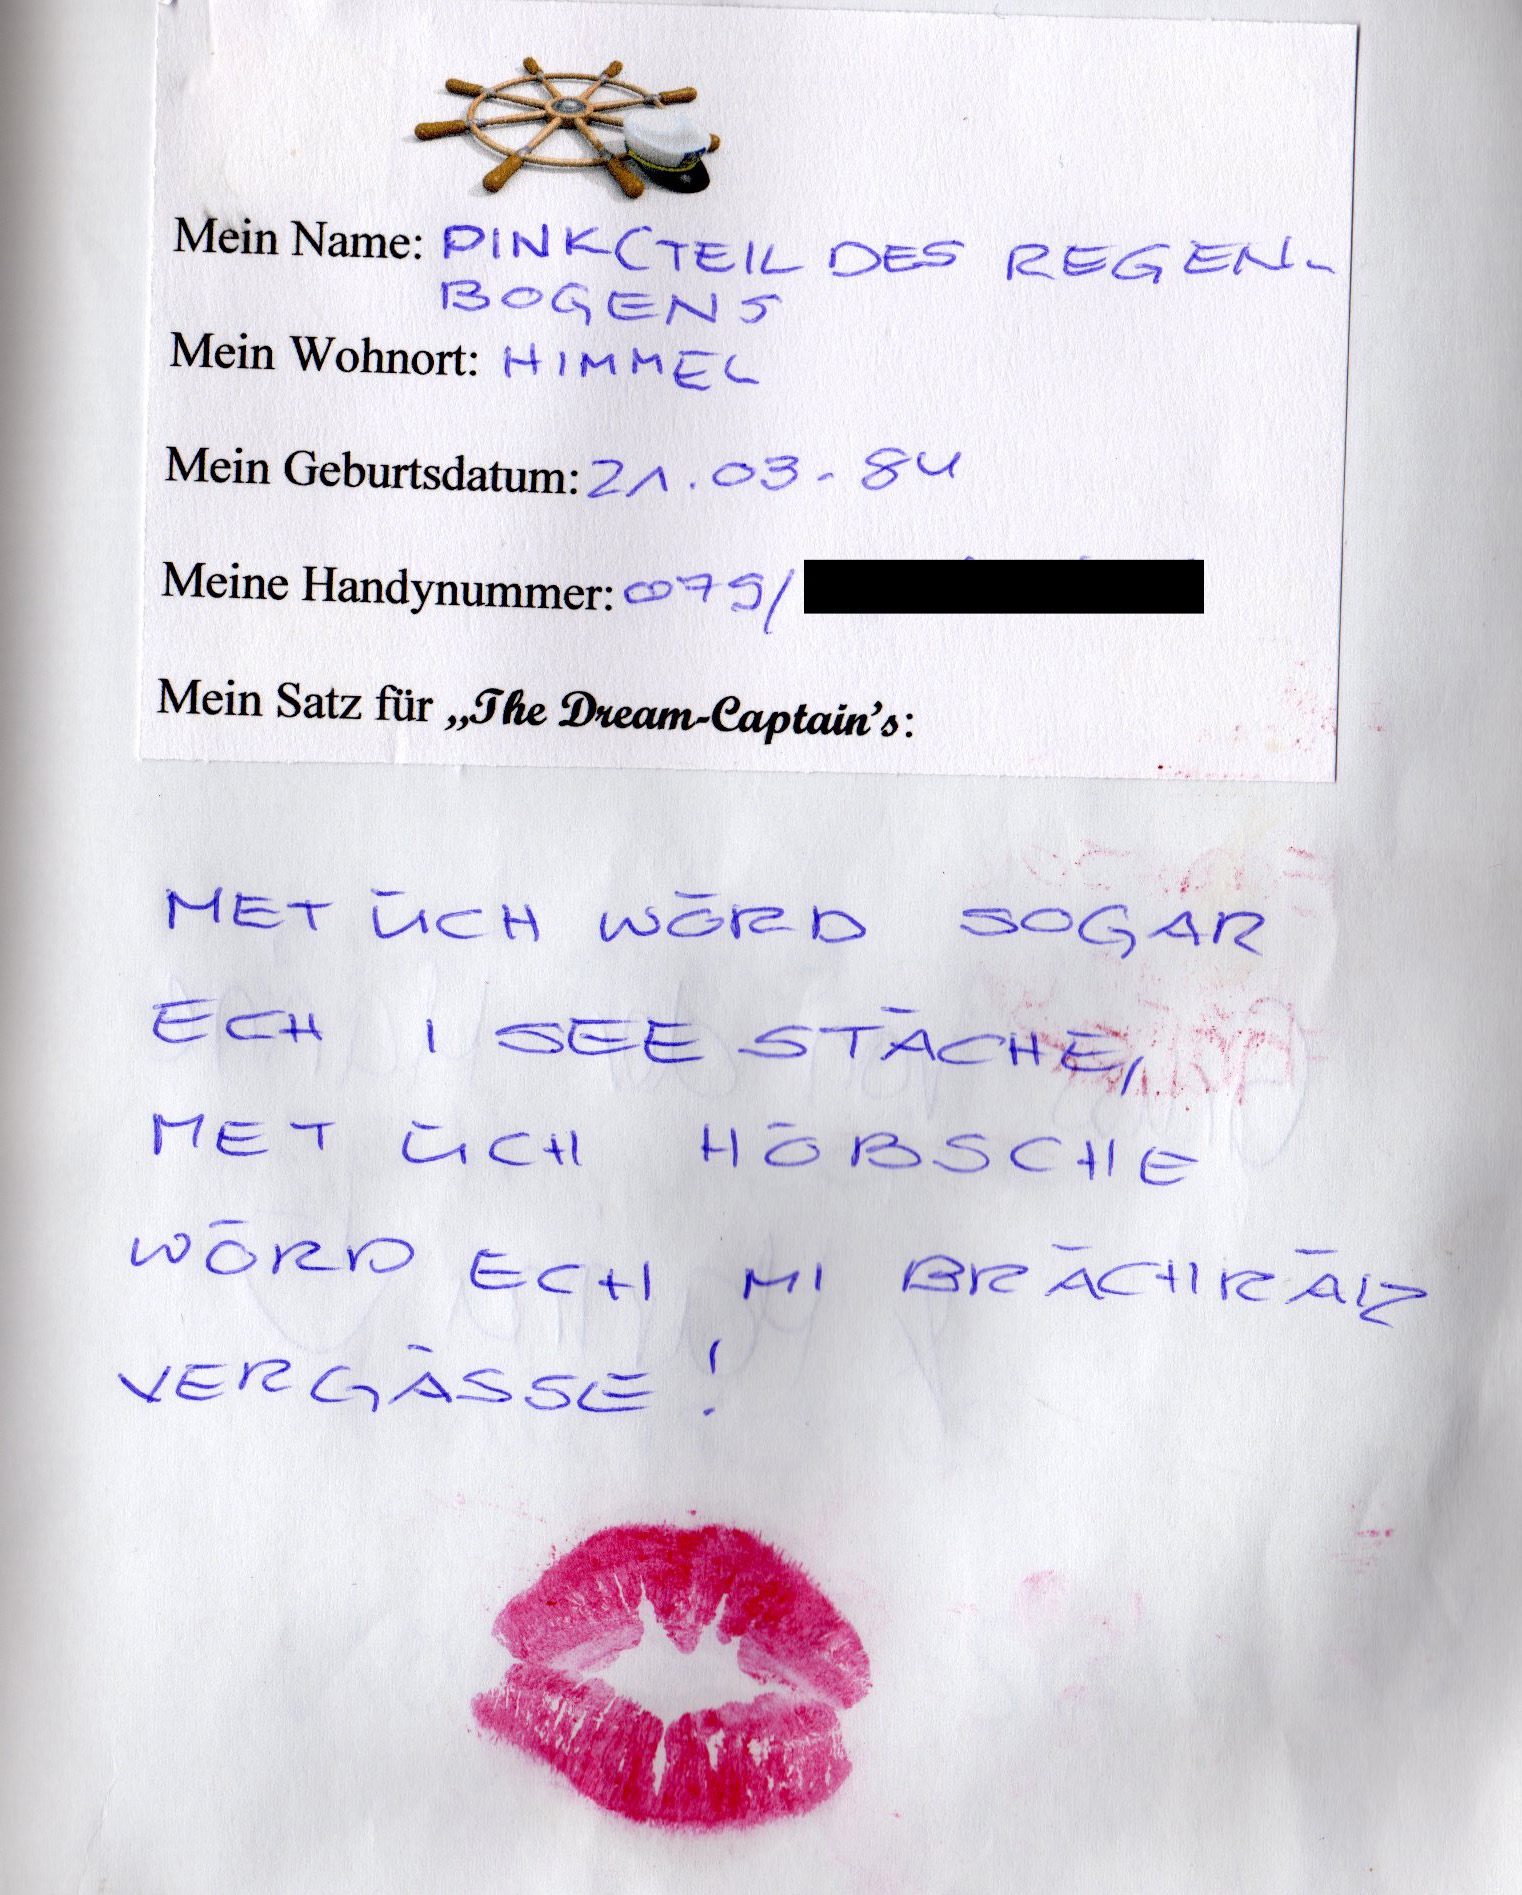 Mein Name: PINK (TEIL DES REGEN-
BOGENS
Mein Wohnort: HIMMEL
Mein Geburtsdatum: 21.03.84
Meine Handynummer: 079/
Mein Satz für „The Dream-Captain's:
MET ÜCH WÖRD SOGAR
ECH I SEE STÄCHE,
MET ÜCH HÖBSCHE
WÖRD ECH MI BRÄCHRÄIZ
VERGÄSSE!